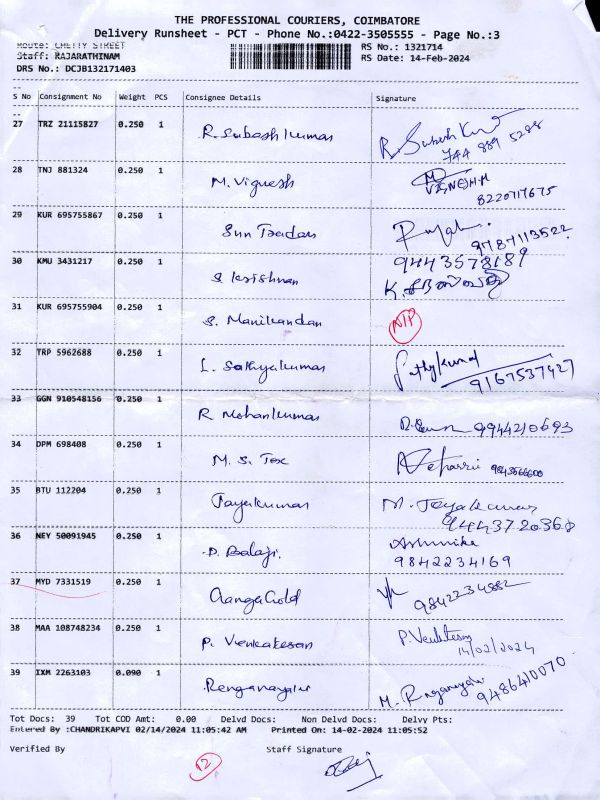 THE PROFESSIONAL COURIERS, COIMBATORE
Delivery Runsheet - PCT - Phone No.:0422-3505555 - Page No.:3
Route: CHETTY STREET RS No.: 1321714
Staff: RAJARATHINAM RS Date: 14-Feb-2024
DRS No.: DCJB132171403
S No Consignment No Weight PCS Consignee Details Signature
27 TRZ 21115827 0.250 1 R. Subash kumar R. Subash Kumar
744 889 5288
28 TNJ 881324 0.250 1 M. Vignesh VIGNESH.M
8220717675
29 KUR 695755867 0.250 1 Sun Traders 9787113522
30 KMU 3431217 0.250 1 S Krishnan 9443578189
31 KUR 695755904 0.250 1 S. Manikandan N/P
32 TRP 5962688 0.250 1 L. Sathyakumar Sathykumar
9167537427
33 GGN 910548156 0.250 1 R Mohankumar 9944210693
34 DPM 698408 0.250 1 M. S. Tex 9843566600
35 BTU 112204 0.250 1 Jayakumar M. Jayakumar
9443720368
36 NEY 50091945 0.250 1 D. Balaji. Ashmika
9842234169
37 MYD 7331519 0.250 1 Ganga Gold 9842234882
38 MAA 108748234 0.250 1 P. Venkatesan P. Venktesan
14/02/2024
39 IXM 2263103 0.090 1 Renganayalu M. Renganayalu
9486410070
Tot Docs: 39 Tot COD Amt: 0.00 Delvd Docs: Non Delvd Docs: Delvy Pts:
Entered By :CHANDRIKAPVI 02/14/2024 11:05:42 AM Printed On: 14-02-2024 11:05:52
Verified By Staff Signature
12